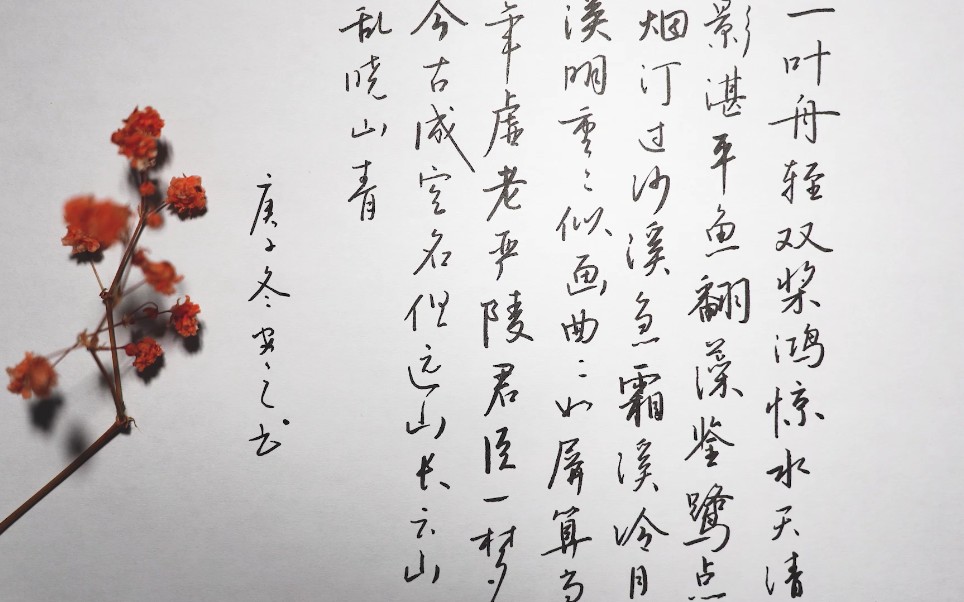 一叶舟轻双桨鸿惊水天清
影湛平鱼翻藻鉴鹭点
烟汀过沙溪急霜溪冷月
溪明重〻似画曲〻如屏算当
年虚老严陵君臣一梦
今古成空名但远山长云山
乱晓山青
庚子冬安之书